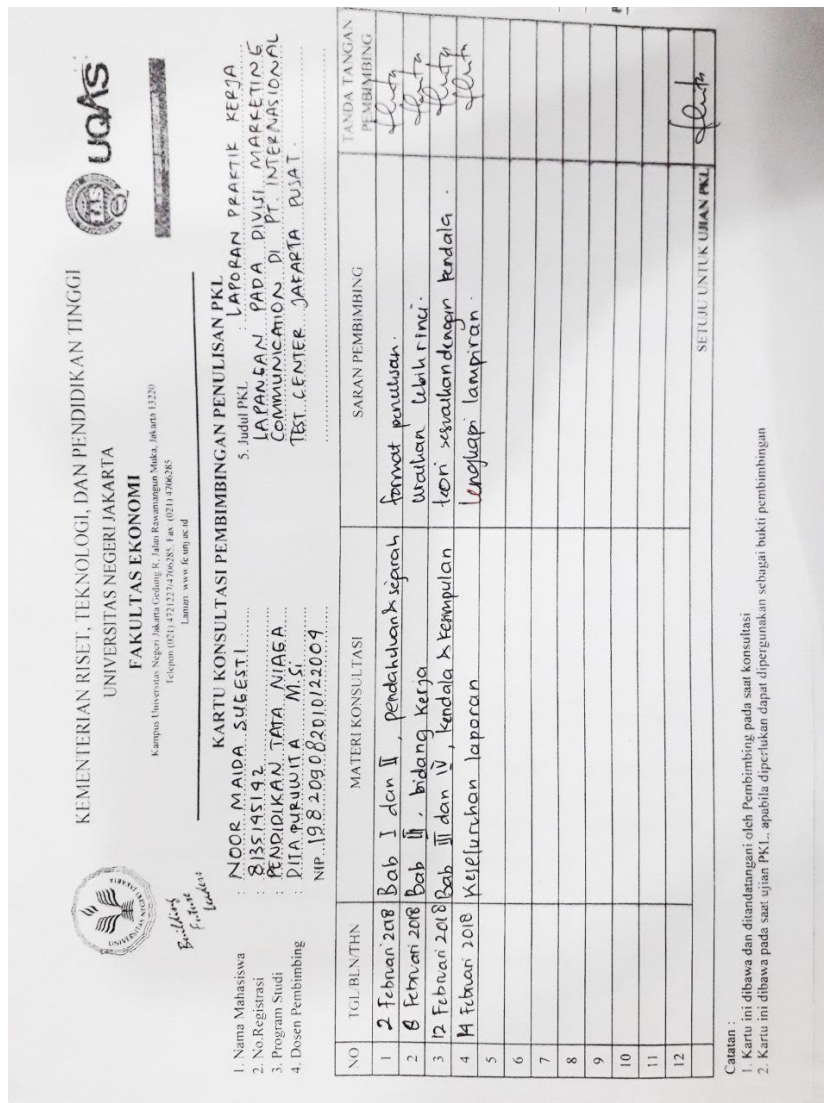 KEMENTERIAN RISET, TEKNOLOGI, DAN PENDIDIKAN TINGGI
UNIVERSITAS NEGERI JAKARTA
FAKULTAS EKONOMI
Kampus Universitas Negeri Jakarta Gedung R, Jalan Rawamangun Muka, Jakarta 13220
Telepon (021) 4721227/4706285, Fax. (021) 4706285
Laman: www.fe.unj.ac.id
Building
Future
Leaders
UQAS
KARTU KONSULTASI PEMBIMBINGAN PENULISAN PKL
1. Nama Mahasiswa : NOOR MAIDA SUGESTI
2. No.Registrasi : 8135145192
3. Program Studi : PENDIDIKAN TATA NIAGA
4. Dosen Pembimbing : DITA PURUWITA M.Si
NIP. 198209082010122004
5. Judul PKL : LAPORAN PRAKTIK KERJA
LAPANGAN PADA DIVISI MARKETING
COMMUNICATION DI PT. INTERNASIONAL
TEST CENTER JAKARTA PUSAT.
NO TGL/BLN/THN MATERI KONSULTASI SARAN PEMBIMBING TANDA TANGAN PEMBIMBING
1 2 Februari 2018 Bab I dan II, pendahuluan & sejarah format penulisan.
2 8 Februari 2018 Bab III, bidang kerja uraikan lebih rinci.
3 12 Februari 2018 Bab III dan IV, kendala & kesimpulan teori sesuaikan dengan kendala.
4 14 Februari 2018 Keseluruhan laporan lengkapi lampiran.
5
6
7
8
9
10
11
12
SETUJU UNTUK UJIAN PKL
Catatan :
1. Kartu ini dibawa dan ditandatangani oleh Pembimbing pada saat konsultasi
2. Kartu ini dibawa pada saat ujian PKL, apabila diperlukan dapat dipergunakan sebagai bukti pembimbingan